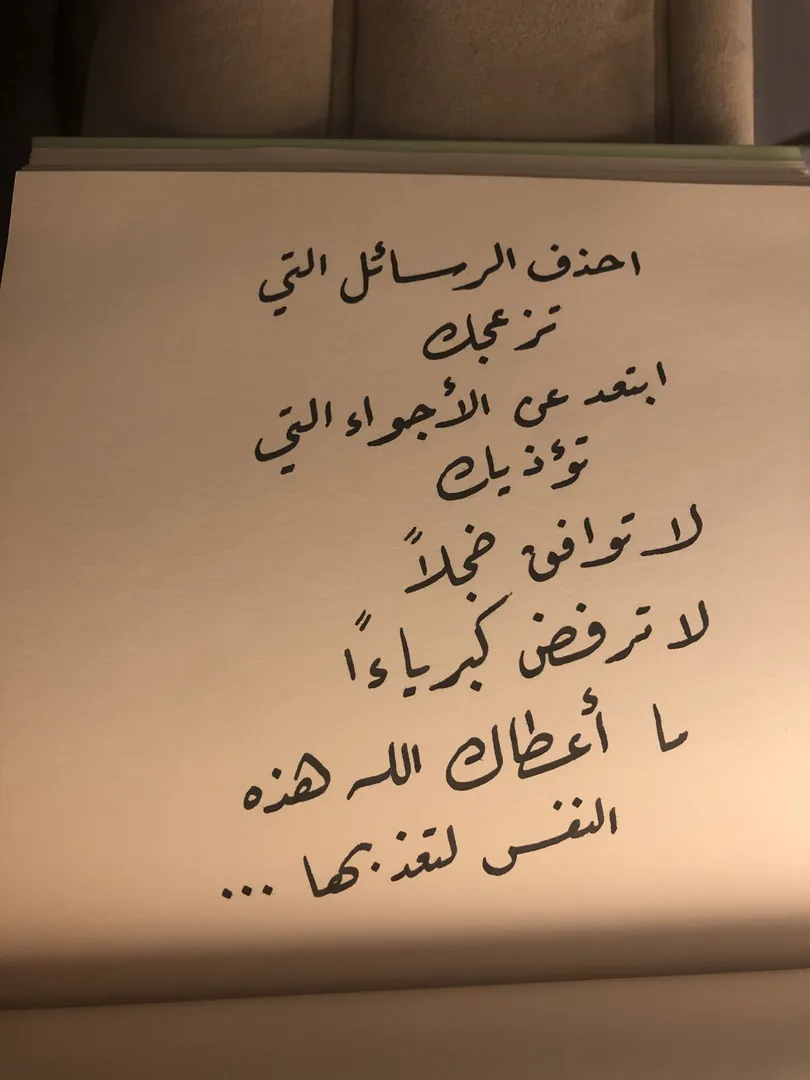 احذف الرسائل التي
تزعجك
ابتعد عن الأجواء التي
تؤذيك
لا توافق خجلاً
لا ترفض كبرياءًا
ما أعطاك الله هذه
النفس لتعذبها ...